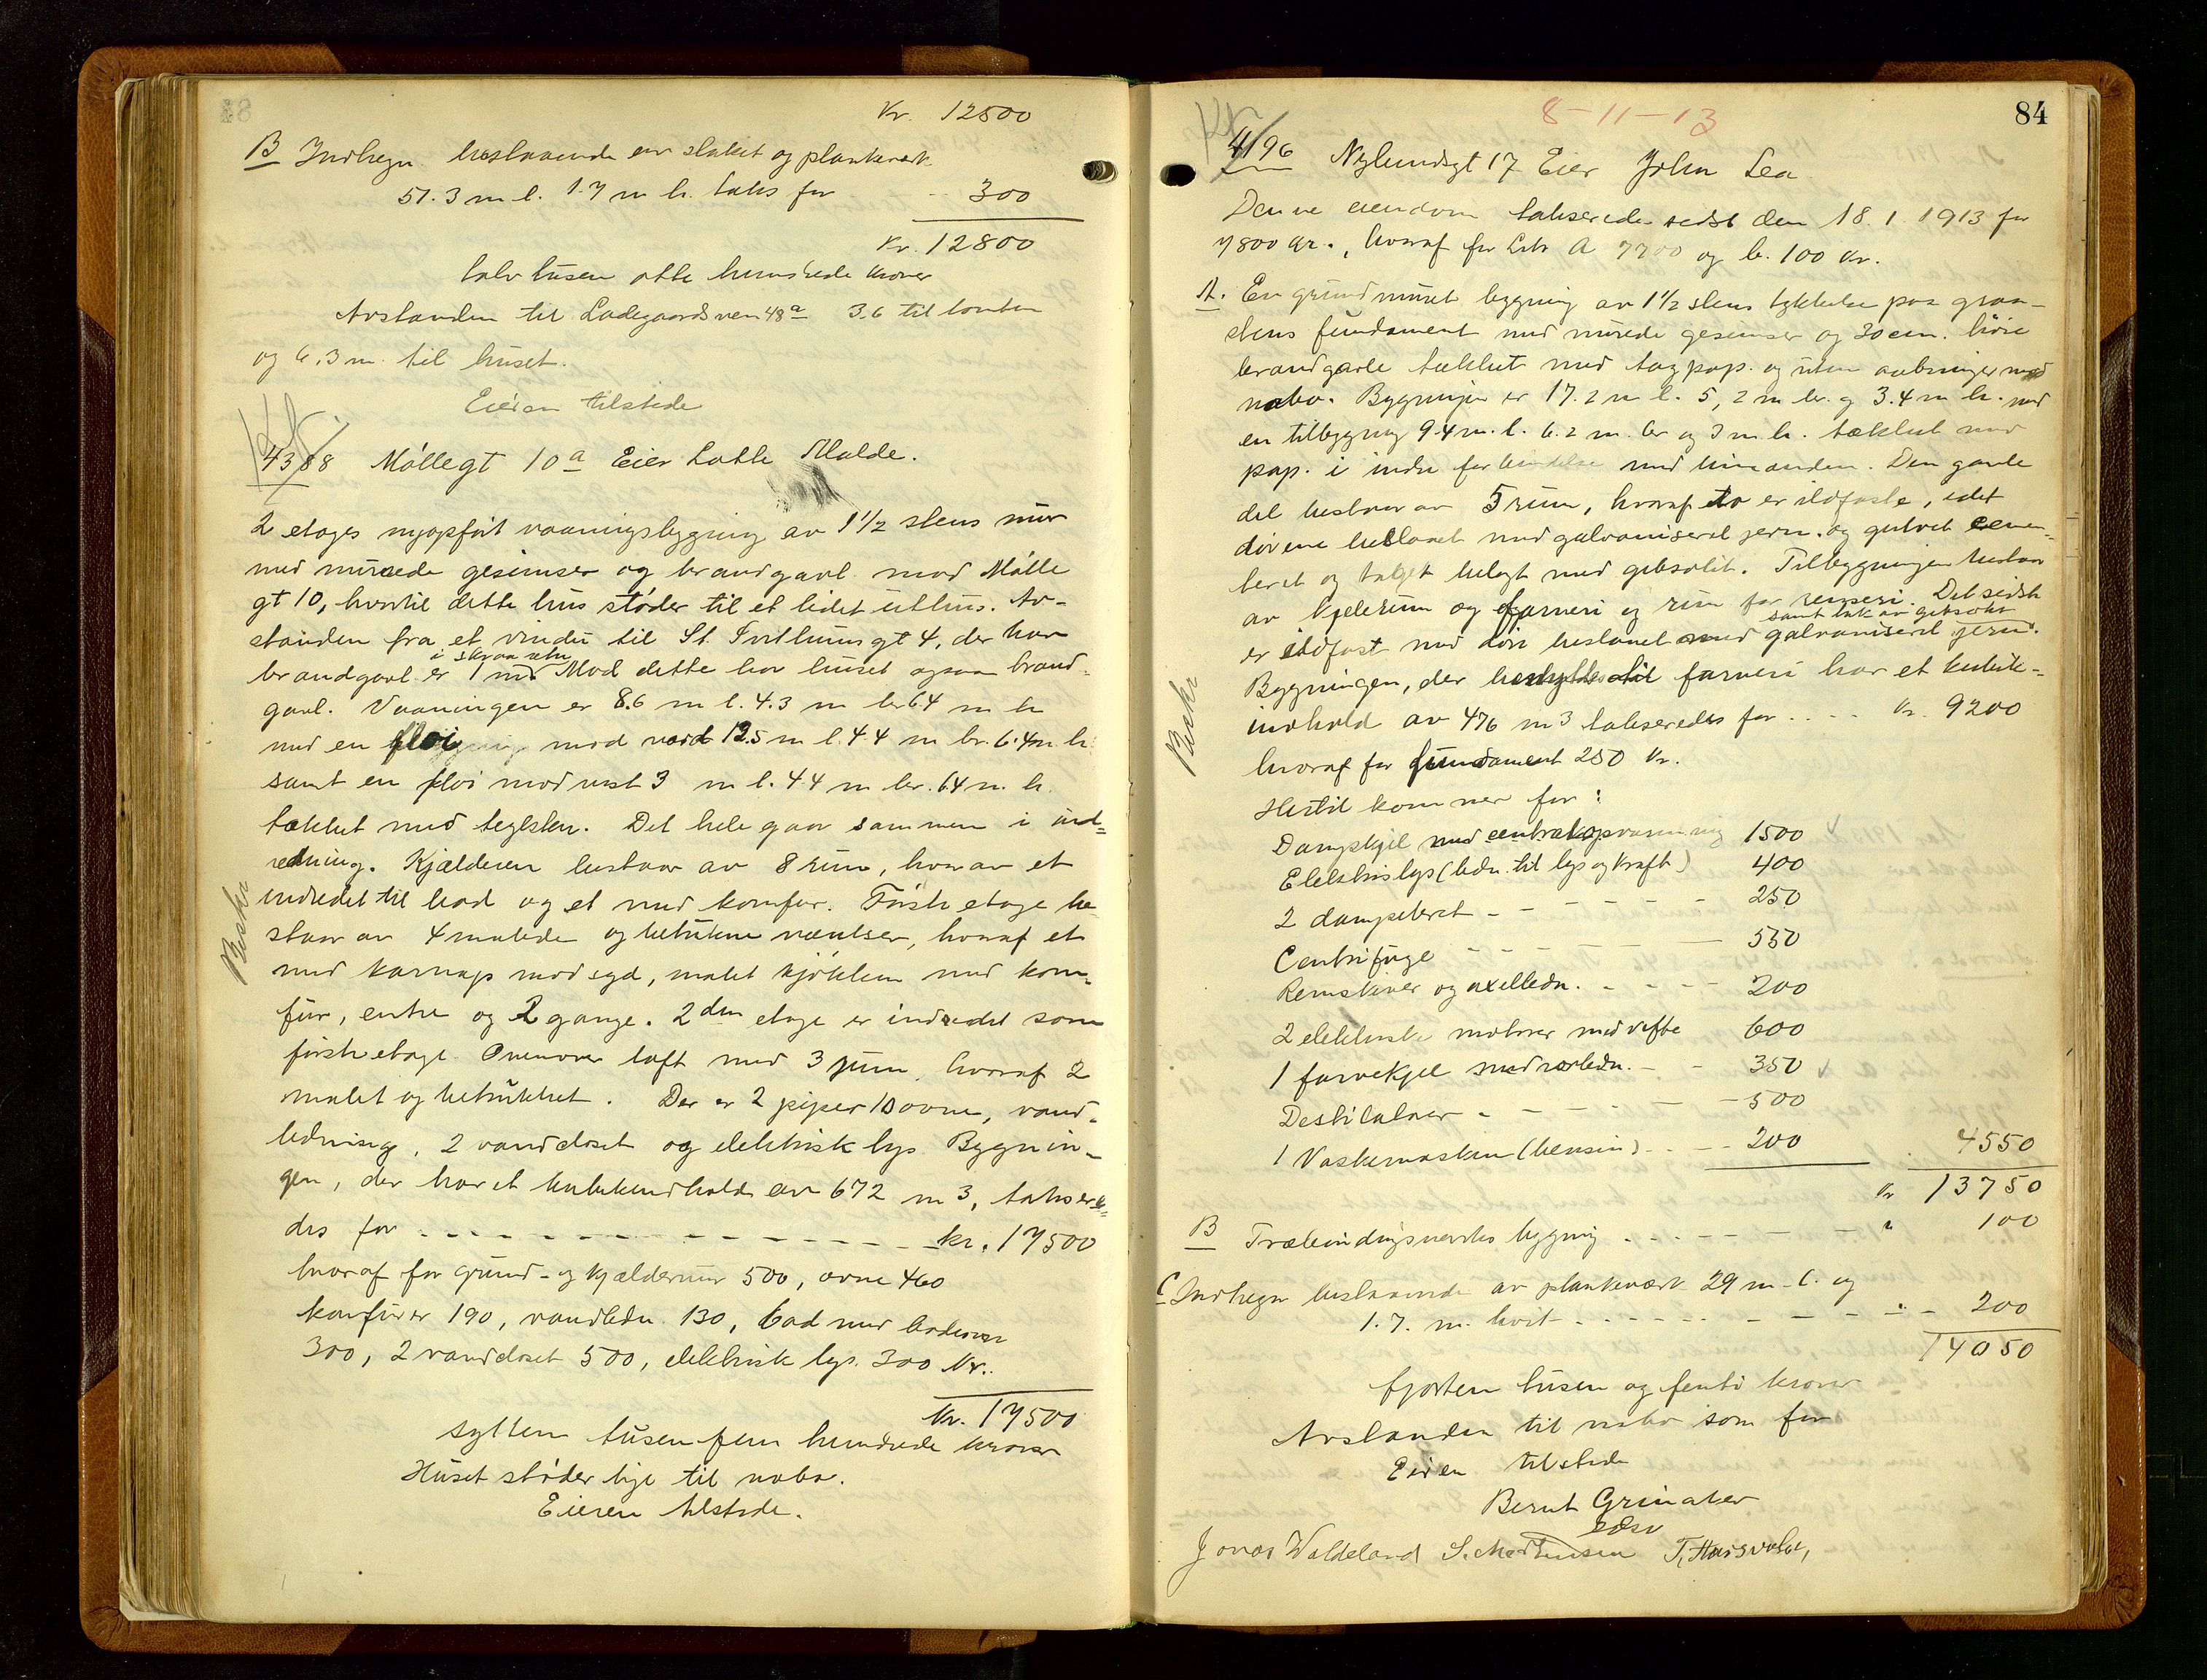 Kr. 12500
B Indhegn bestaaende av stakit og plankverk
51.3 m l. 1.7 m h. taks for - - 300
Kr. 12800
tolv tusen otte hundrede kroner
Avstanden til Ladegaardsveien 48 a 3.6 til tomten
og 6.3 m. til huset.
Eieren tilstede
4388 Møllegt 10 a Eier Lotte Malde.
2 etages nyopført vaaningsbygning av 1 1/2 stens mur
med murede gesimser og brandgavl mod Mølle
gt 10, hvortil dette hus støder til et lidet uthus. Av-
standen fra et vindu til St. Svithuns gt 4, der har
i skraa retn
brandgavl er 1 m Mod dette har huset ogsaa brand-
gavl. Vaaningen er 8.6 m l. 4.3 m br 6.4 m h
med en fløi mod nord 12.5 m l. 4.4 m br. 6.4 m. h.
samt en fløi mod vest 3 m l. 4.4 m br. 6.4 m. h.
tækket med teglsten. Det hele gaar sammen i ind-
redning. Kjælderen bestaar av 8 rum, hvorav et
indredet til bad og et med komfur. Første etage be-
staar av 4 malede og betrukne værelser, hvoraf et
med karnap mod syd, malet kjøkken med kom-
fur, entre og 2 gange. 2den etage er indredet som
første etage. Ovenover loft med 3 rum, hvoraf 2
malet og betrukket. Der er 2 piper 10 ovne, vand-
ledning, 2 vandcloset og elektrisk lys. Bygnin-
gen, der har et kubikindhold av 672 m3, taksere-
des for - - - - kr. 17500
hvoraf for grund- og kjældermur 500, ovne 460
komfurer 190, vandledn. 130, bad med badeovn
300, 2 vandcloset 500, elektrisk lys. 300 Kr.
Kr. 17500
sytten tusen fem hundrede kroner
Huset støder lige til nabo.
Eieren tilstede.
Beskr
84
8-11-13
4196 Nylundsgt 17 Eier John Lea
Denne eiendom takseredes sidst den 18.1.1913 for
7800 kr., hvoraf for Litr A 7700 og b. 100 kr.
A. En grundmuret bygning av 1 1/2 stens tykkelse paa graa-
stens fundament med murede gesimser og 30 cm. høie
brandgavle tækket med tagpap. og uten aabninger mod
nabo. Bygningen er 17.2 m l. 5,2 m br. og 3.4 m h. med
en tilbygning 9.4 m. l. 6.2 m. br og 3 m h. tækket med
pap. i indre forbindelse med hinanden. Den gamle
del bestaar av 5 rum, hvoraf to er ildfaste, idet
dørene beslaaet med galvaniseret jern. og gulvet cemen-
teret og taget belagt med gibsolit. Tilbygningen bestaar
av kjelerum og farveri og rum for renseri. Det sidste
samt tak av gibsolit
er ildfast med dør beslaaet med galvaniseret jern.
Bygningen, der benyttes til farveri har et kubik-
indhold av 476 m3 takseredes for .... Kr. 9200
hvoraf for fundament 250 Kr.
Hertil kommer for:
Dampkjel med centralopvarmning 1500
Elektrisk lys (ledn. til lys og kraft) 400
2 dampiteret - - - 250
Centrifuge - - - 550
Remskiver og axelledn. - - - 200
2 elektriske motorer med vifte 600
1 farvekjel med rørledn. - - 350
Destilator - - - 500
1 Vaskemaskin (bensin) - - 200 4550
Kr 13750
B Træbindingsverks bygning - - - " 100
C Indhegn bestaaende av plankeverk 29 m. l. og
1.7. m. høit - - - " - 200
14050
fjorten tusen og femti kroner
Avstanden til nabo som før
Eieren tilstede
Bernt Grinaker
Jonas Waldeland S. Mortensen T. Haisvold,
Beskr